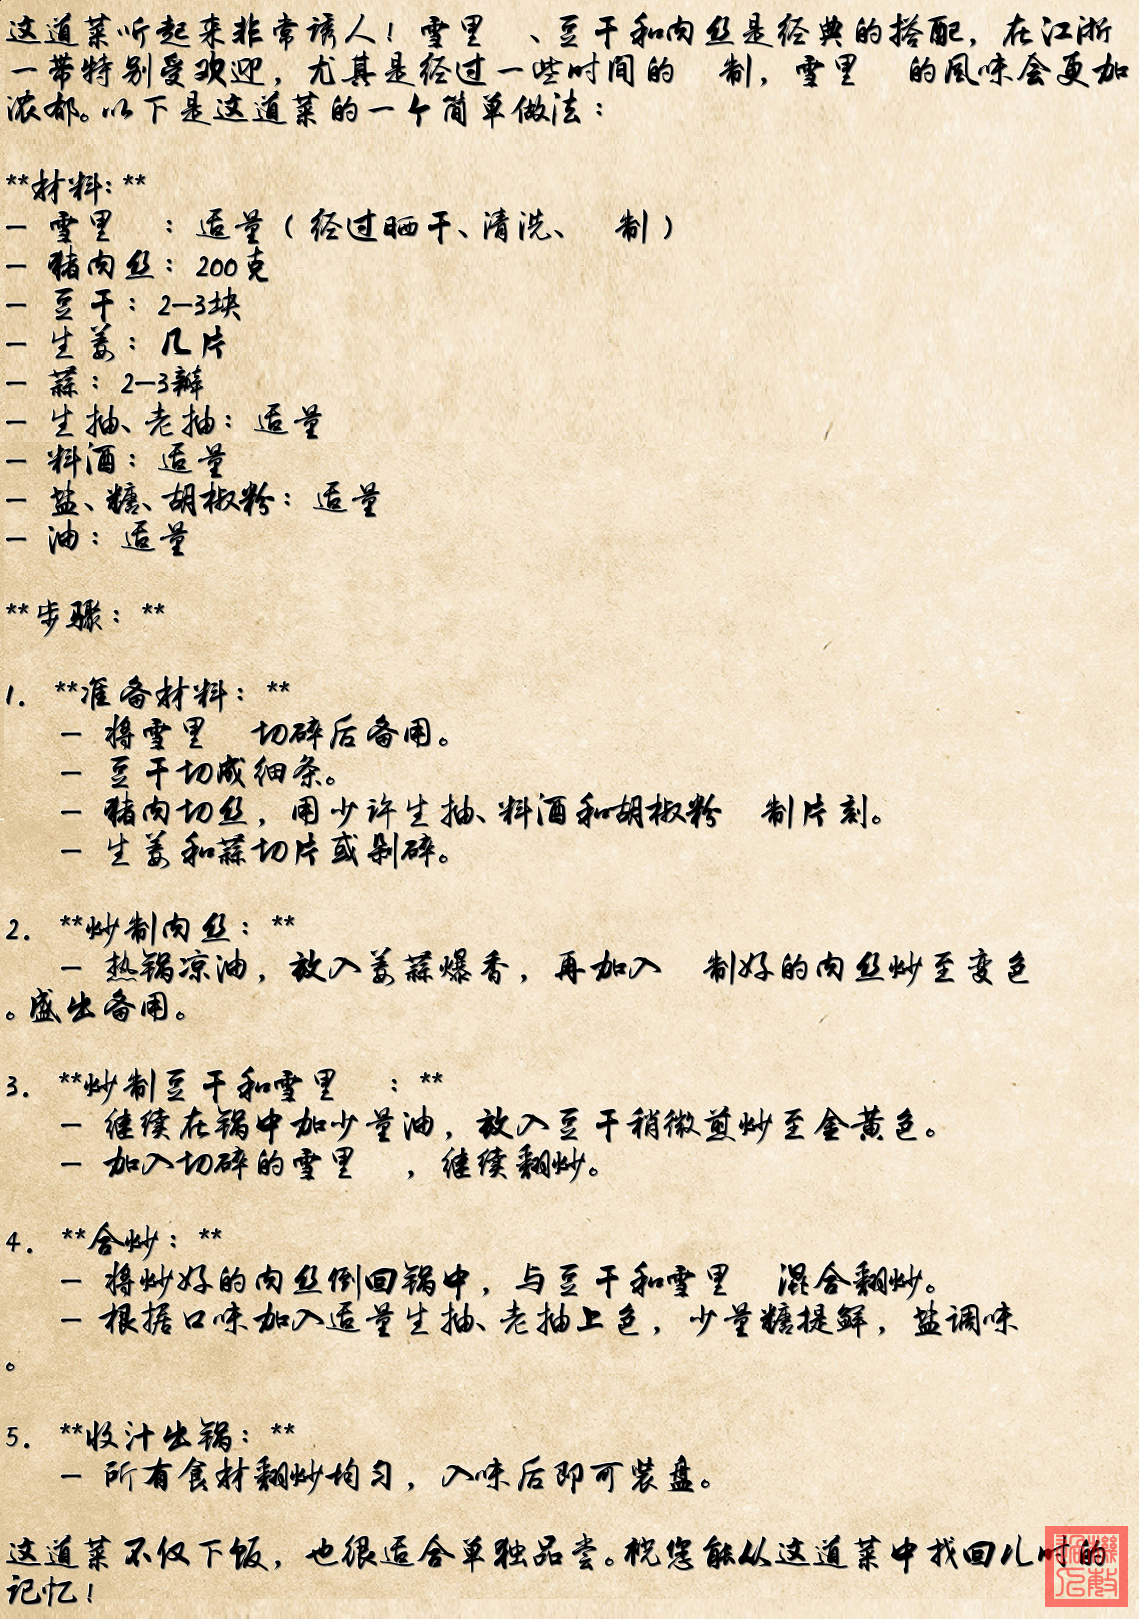 这道菜听起来非常诱人！雪里 、豆干和肉丝是经典的搭配，在江浙
一带特别受欢迎，尤其是经过一些时间的 制，雪里 的风味会更加
浓郁。以下是这道菜的一个简单做法：
**材料：**
- 雪里 ：适量（经过晒干、清洗、 制）
- 猪肉丝：200克
- 豆干：2-3块
- 生姜：几片
- 蒜：2-3瓣
- 生抽、老抽：适量
- 料酒：适量
- 盐、糖、胡椒粉：适量
- 油：适量
**步骤：**
1. **准备材料：**
- 将雪里 切碎后备用。
- 豆干切成细条。
- 猪肉切丝，用少许生抽、料酒和胡椒粉 制片刻。
- 生姜和蒜切片或剁碎。
2. **炒制肉丝：**
- 热锅凉油，放入姜蒜爆香，再加入 制好的肉丝炒至变色
。盛出备用。
3. **炒制豆干和雪里 ：**
- 继续在锅中加少量油，放入豆干稍微煎炒至金黄色。
- 加入切碎的雪里 ，继续翻炒。
4. **合炒：**
- 将炒好的肉丝倒回锅中，与豆干和雪里 混合翻炒。
- 根据口味加入适量生抽、老抽上色，少量糖提鲜，盐调味
。
5. **收汁出锅：**
- 所有食材翻炒均匀，入味后即可装盘。
这道菜不仅下饭，也很适合单独品尝。祝您能从这道菜中找回儿时的
记忆！